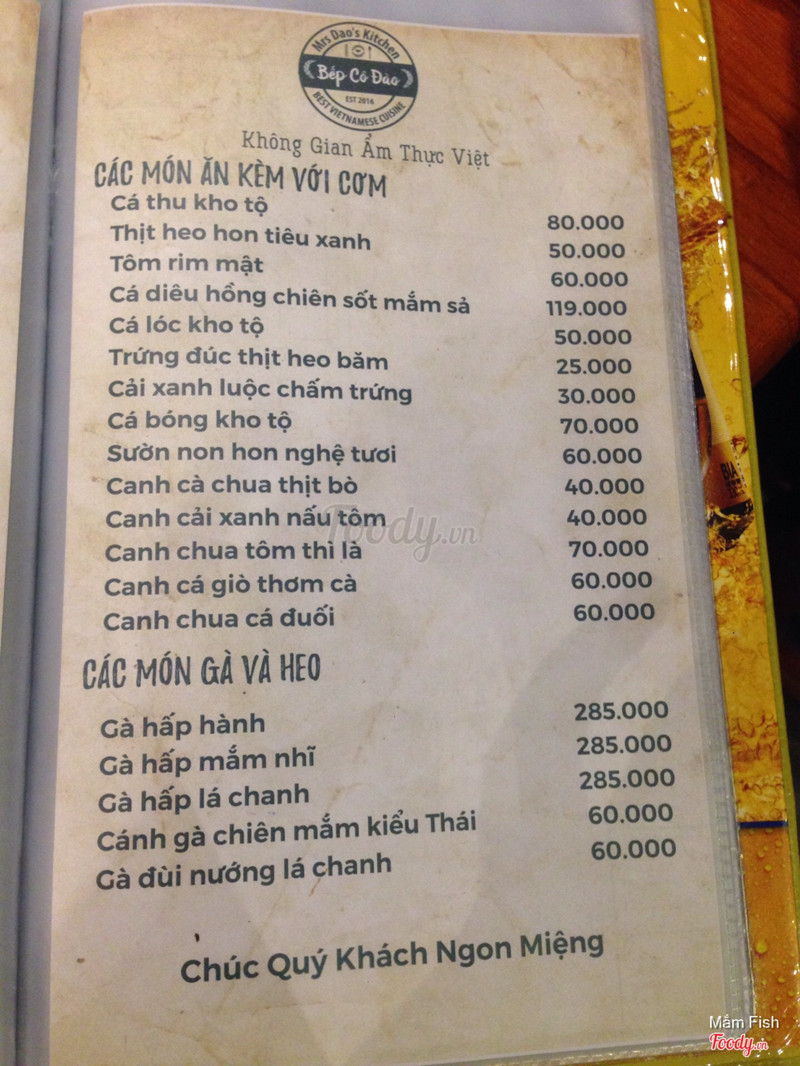 Mrs Dao's Kitchen
Bếp Cô Đào
EST 2016
BEST VIETNAMESE CUISINE
Không Gian Ẩm Thực Việt
CÁC MÓN ĂN KÈM VỚI CƠM
Cá thu kho tộ 80.000
Thịt heo hon tiêu xanh 50.000
Tôm rim mật 60.000
Cá diêu hồng chiên sốt mắm sả 119.000
Cá lóc kho tộ 50.000
Trứng đúc thịt heo băm 25.000
Cải xanh luộc chấm trứng 30.000
Cá bóng kho tộ 70.000
Sườn non hon nghệ tươi 60.000
Canh cà chua thịt bò 40.000
Canh cải xanh nấu tôm 40.000
Canh chua tôm thì là 70.000
Canh cá giò thơm cà 60.000
Canh chua cá đuối 60.000
Foody.vn
CÁC MÓN GÀ VÀ HEO
Gà hấp hành 285.000
Gà hấp mắm nhĩ 285.000
Gà hấp lá chanh 285.000
Cánh gà chiên mắm kiểu Thái 60.000
Gà đùi nướng lá chanh 60.000
Chúc Quý Khách Ngon Miệng
Mắm Fish
Foody.vn